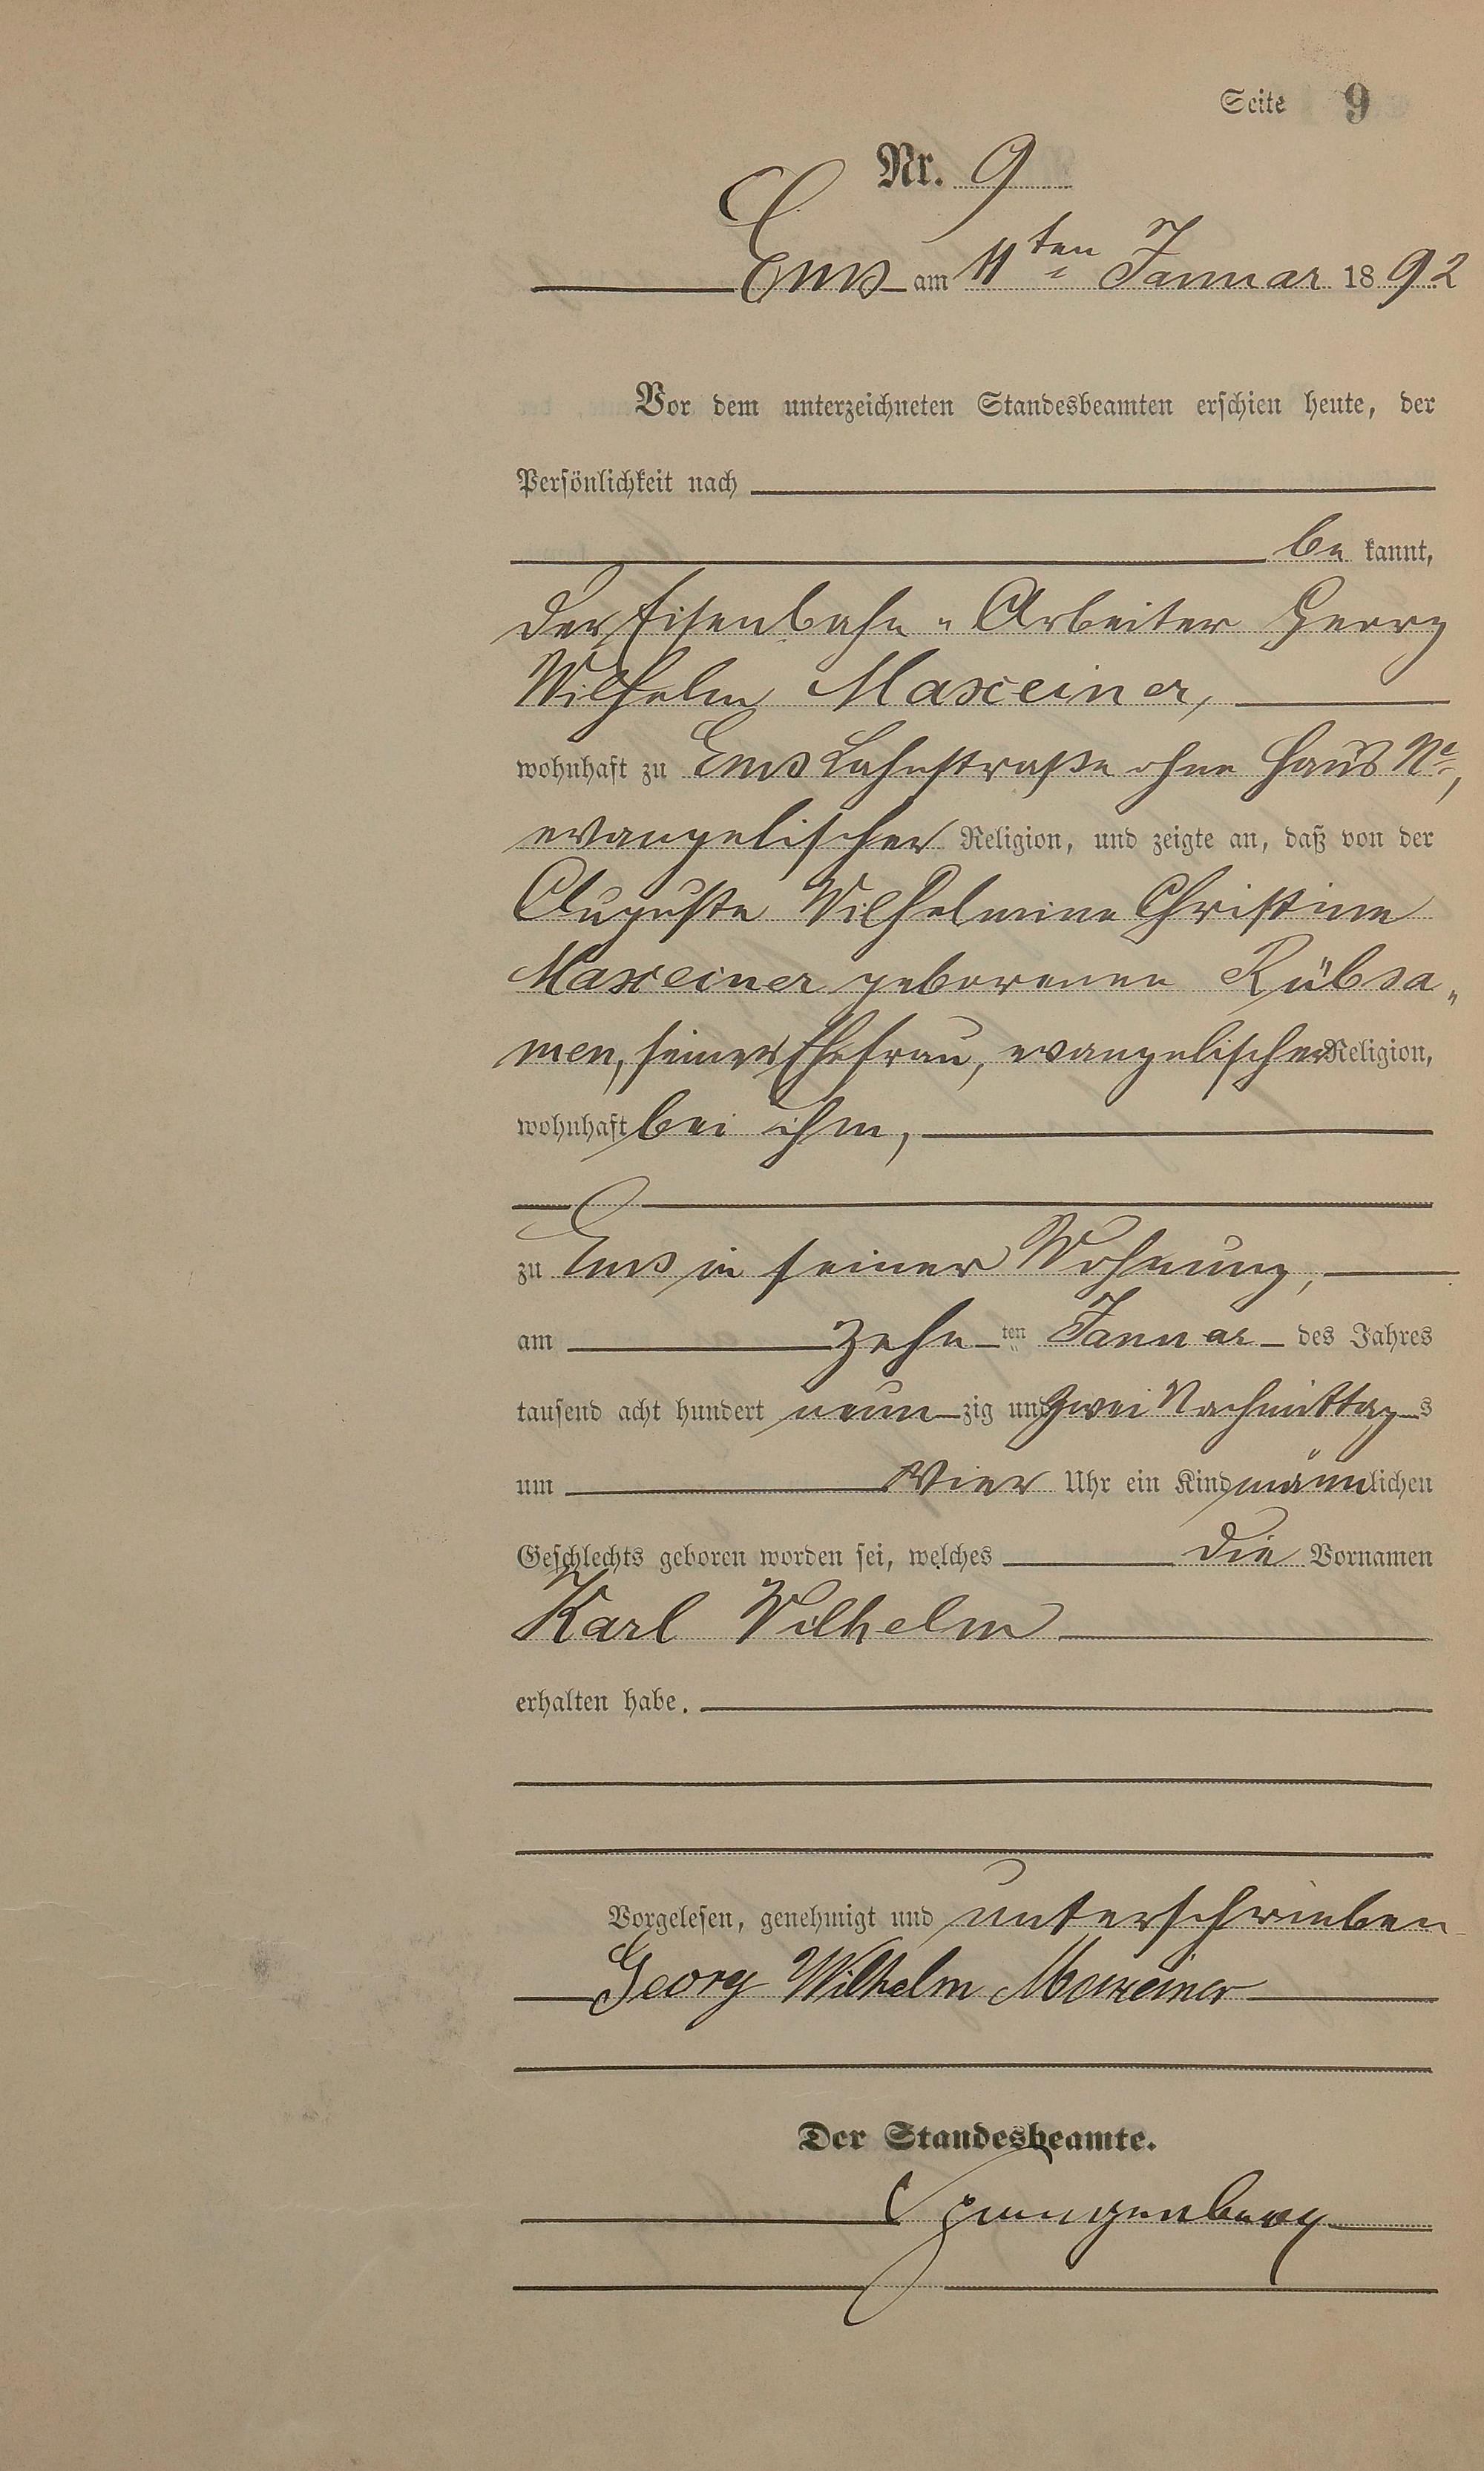 Seite 9
Nr. 9
Ems am 11ten Januar 1892
Vor dem unterzeichneten Standesbeamten erschien heute, der
Persönlichkeit nach
be kannt,
der Eisenbahn-Arbeiter Georg
Wilhelm Maxeiner,
wohnhaft zu Ems Lahnstraße ohne Haus No,
evangelischer Religion, und zeigte an, daß von der
Auguste Wilhelmine Christine
Maxeiner geborenen Rübsa-
men, seiner Ehefrau, evangelischer Religion,
wohnhaft bei ihm,
zu Ems in seiner Wohnung,
am zehn ten Januar des Jahres
tausend acht hundert neun zig und zwei Nachmittag s
um vier Uhr ein Kind männlichen
Geschlechts geboren worden sei, welches die Vornamen
Karl Wilhelm
erhalten habe.
Vorgelesen, genehmigt und unterschrieben
Georg Wilhelm Maxeiner
Der Standesbeamte.
Spangenberg